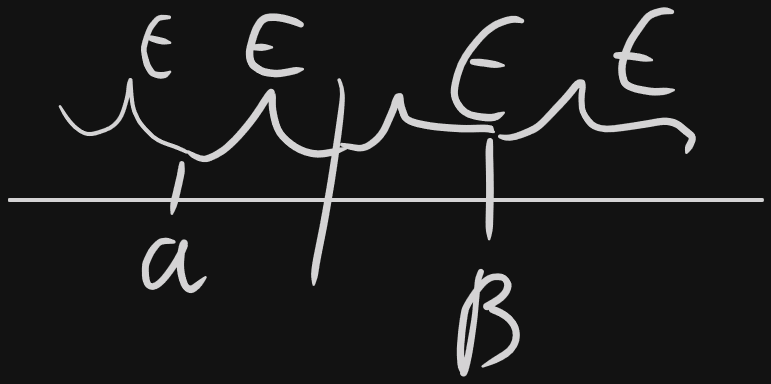 ε ε ε ε
a β